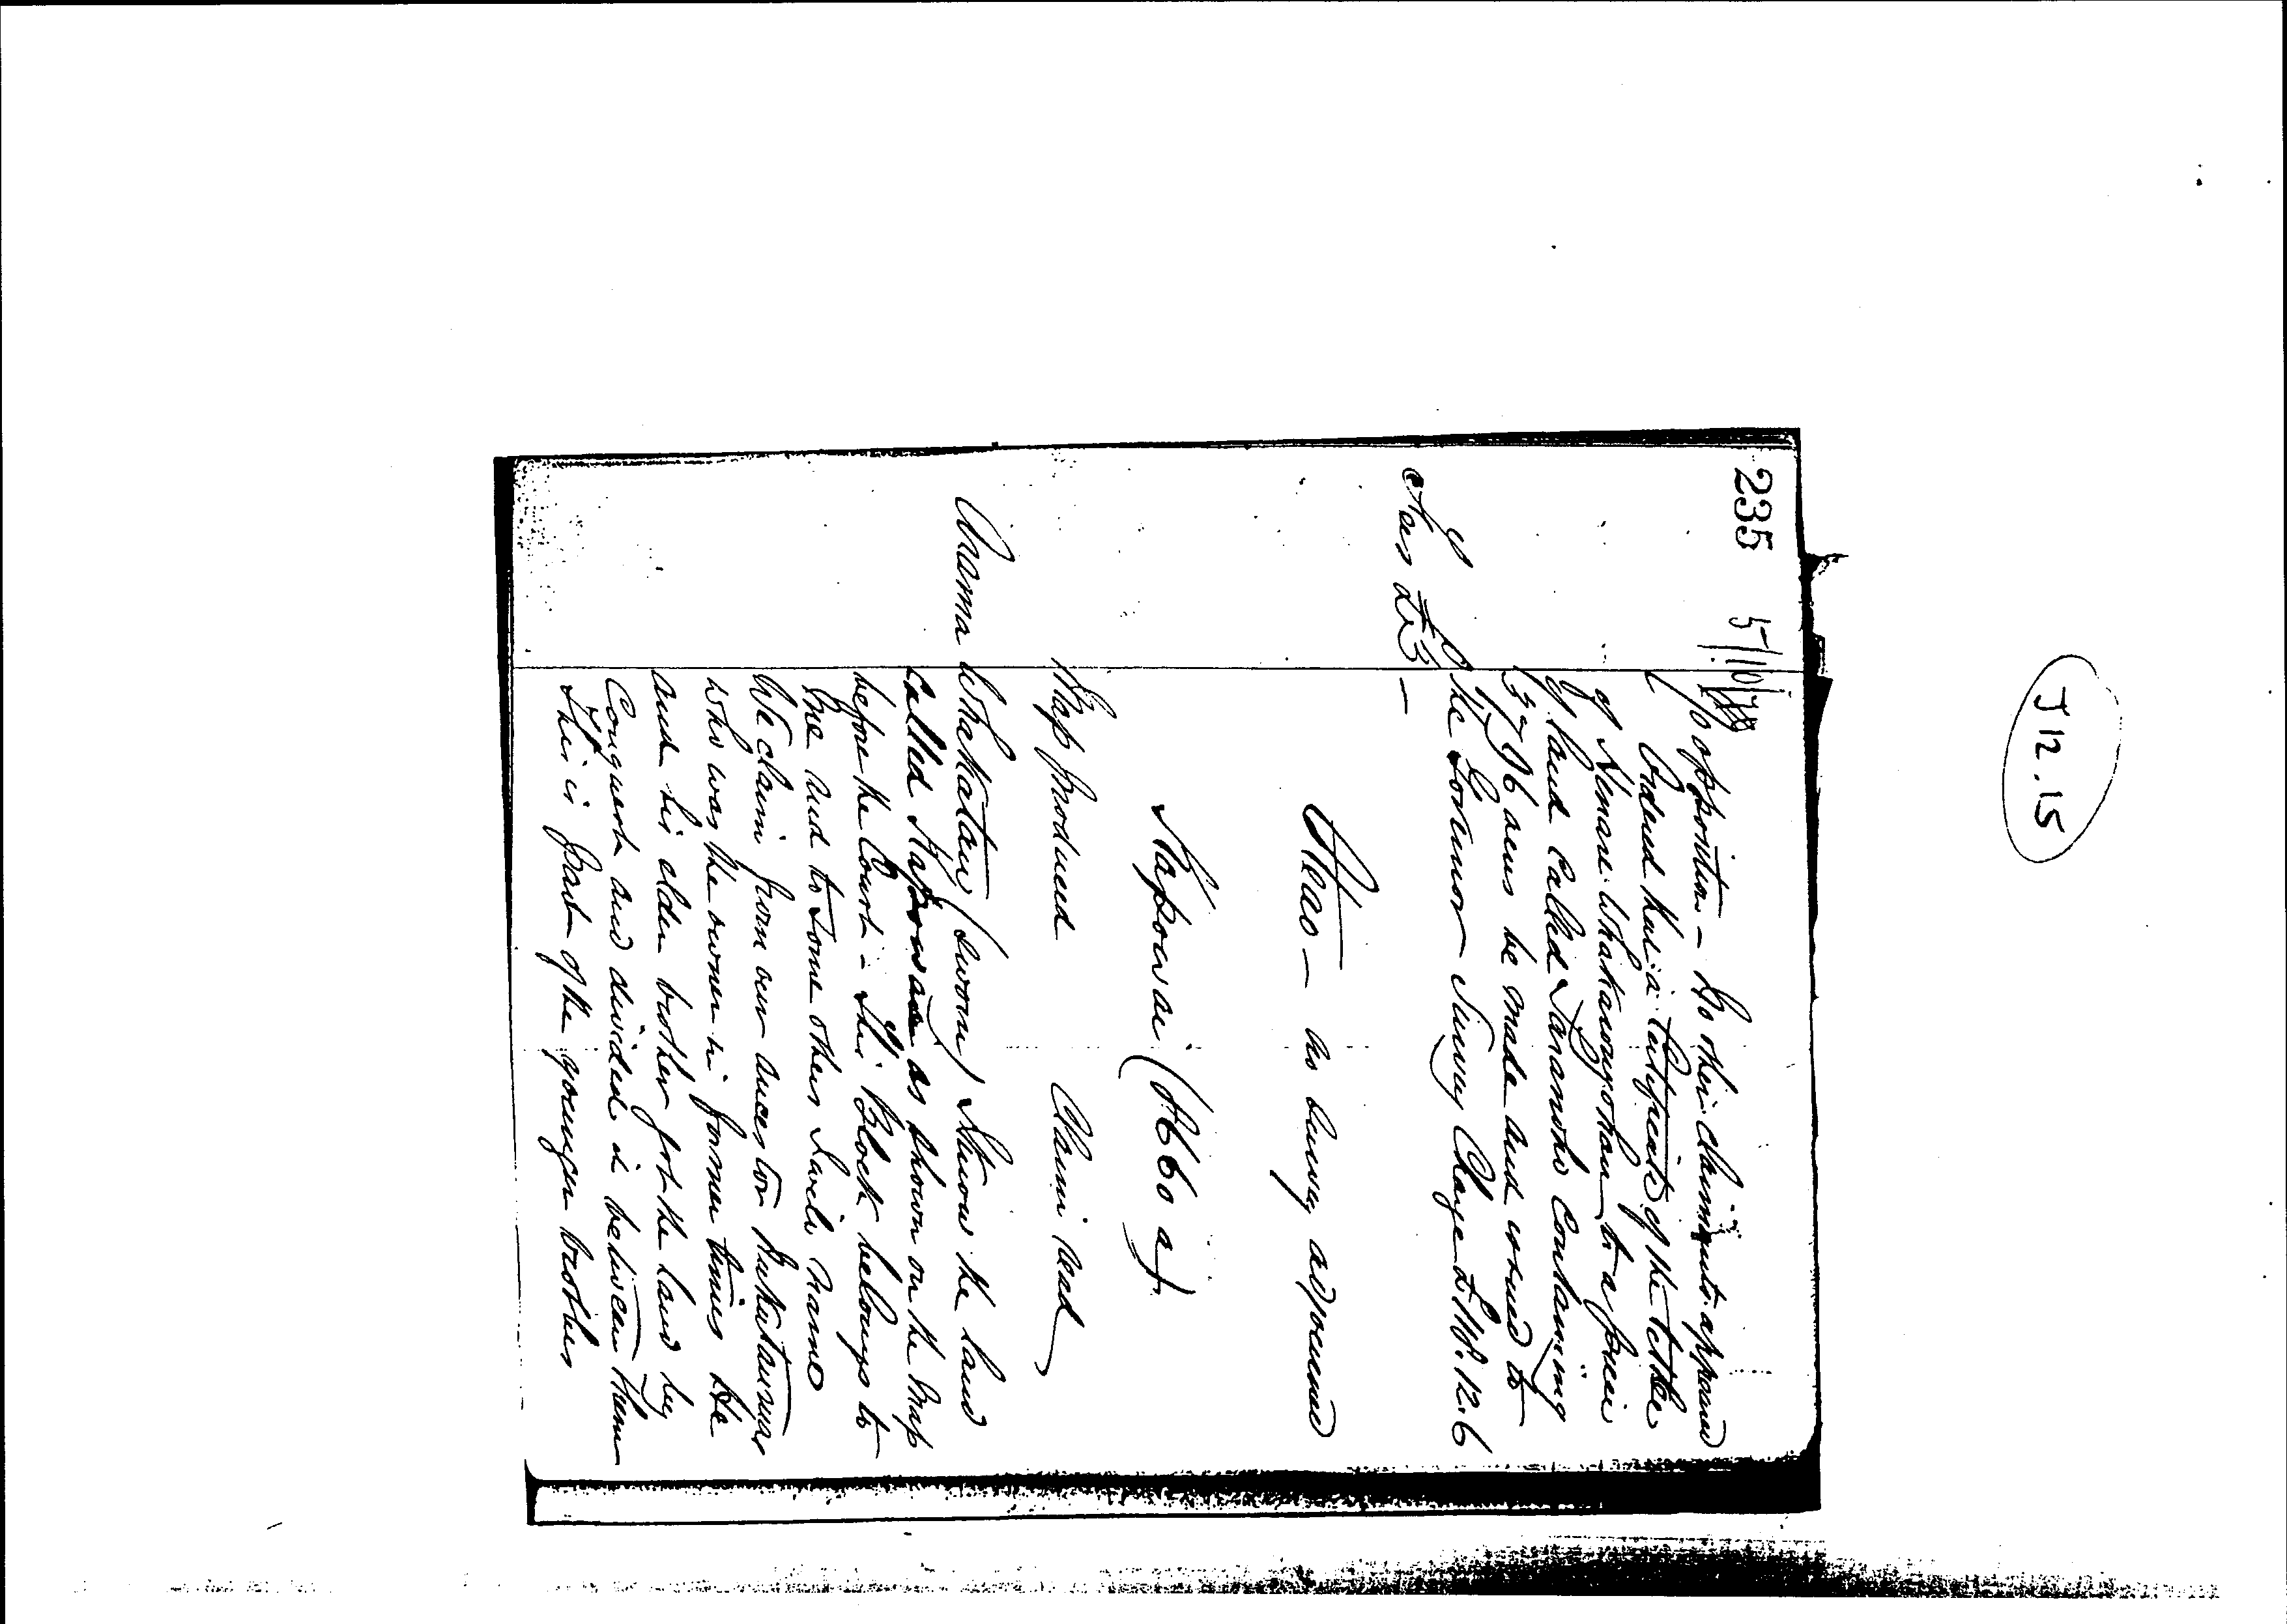 J12.15
235 5/10/78
No opposition – No other claimants appeared
Ordered that a Certificate of the title
of Nmare Whakarongohau to a piece
of land called containing
3796 acres be made and issued to
the Governor Survey Charge £118.12.6
Fees £3 –
Akao – no survey adjourned
Kapowai (8660 a)
Map produced Claim read
Arama Whakatau (sworn) I know the land
called Kapowai as shown on the map
before the Court – This Block belongs to
me and to some others I will name
We claim from our ancestor
who was the owner in former times He
and his elder brother got the land by
Conquest and divided it between them
This is part of the younger brother